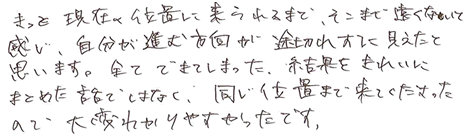 きっと現在の位置に来られるまで、そこまで遠くないと
感じ、自分が進む方向が途切れずに見えたと
思います。全てできてしまった、結果をきれいに
まとめた話ではなく、同じ位置まで来てくださった
ので、大変わかりやすかったです。